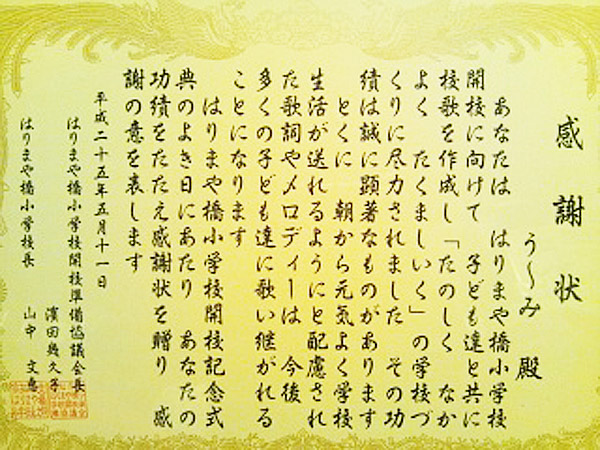 感謝状
う〜み 殿
あなたは はりまや橋小学校
開校に向けて 子ども達と共に
校歌を作成し「たのしく なか
よく たくましいく」の学校づ
くりに尽力されました その功
績は誠に顕著なものがあります
とくに 朝から元気よく学校
生活が送れるようにと配慮され
た歌詞やメロディーは 今後
多くの子ども達に歌い継がれる
ことになります
はりまや橋小学校開校記念式
典のよき日にあたり あなたの
功績をたたえ感謝状を贈り 感
謝の意を表します
平成二十五年五月十一日
はりまや橋小学校開校準備協議会長
濱田幾久子
はりまや橋小学校長
山中 文惠